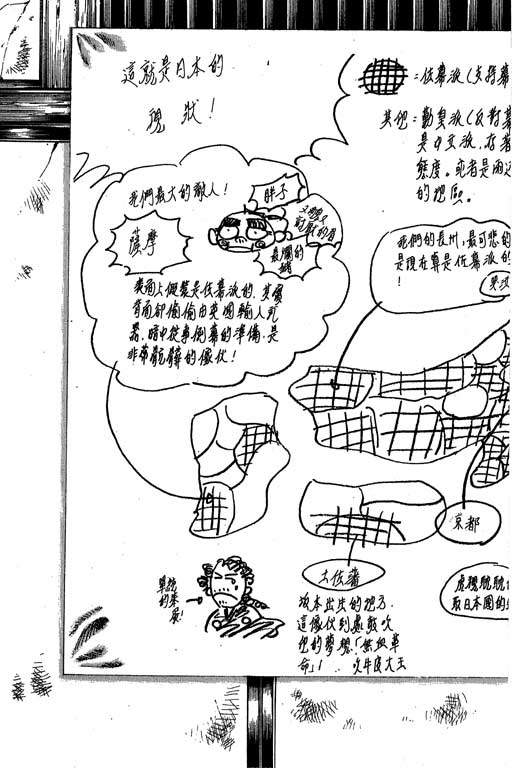 這就是日本的
現狀！
＝佐幕派（支持幕
其他：勤皇派（反對幕
是中立派，在著
態度。或者是兩江
的地區。
我們最大的敵人！
胖子
薩摩
最爛的
表面上假裝是佐幕派的，其實
背面卻偷偷由英國輸入武
器，暗中從事倒幕的準備，是
非常骯髒的傢伙！
我們的長州，最可悲的
是現在算是佐幕派的
！
京都
土佐藩
坂本出生的地方．
這傢伙到處鼓吹
他的夢想，「無血革
命」！．．吹牛皮大王
單純
的笨
蛋！
虎視眈眈
取日本國的